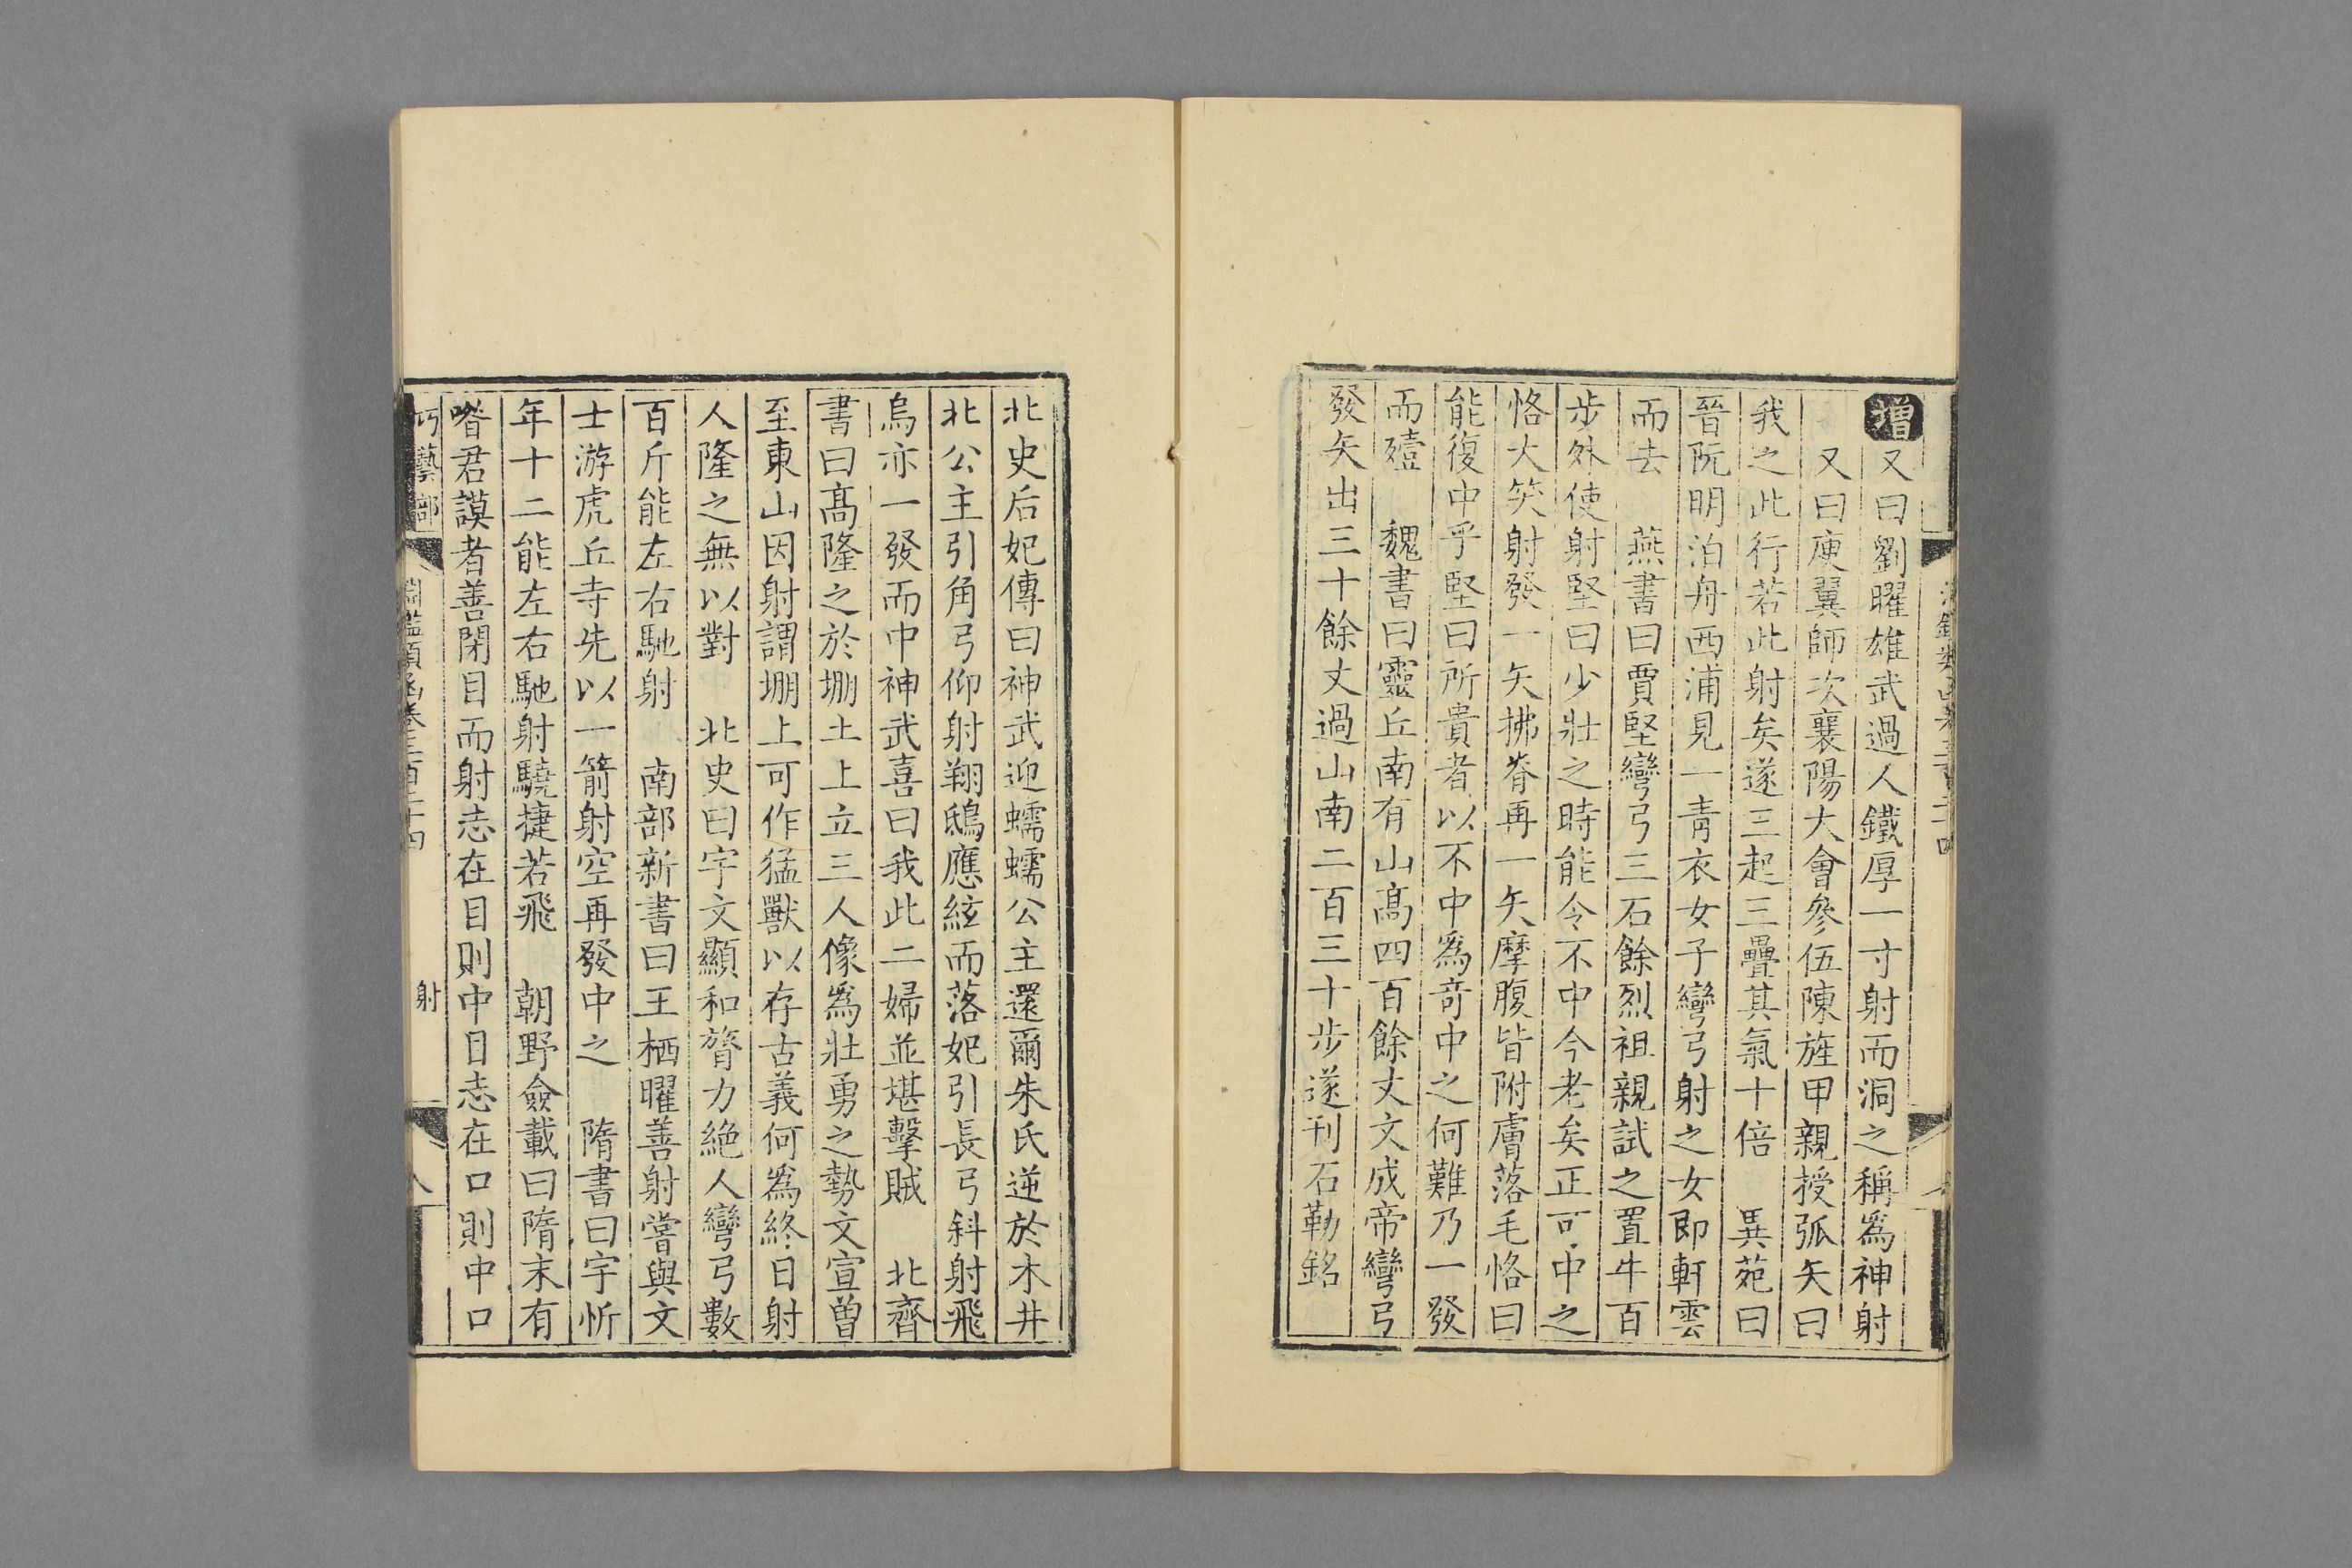 增又曰劉曜雄武過人鐵厚一寸射而洞之稱爲神射
又曰庾翼師次襄陽大會參伍陳旌甲親授弧矢曰
我之此行若此射矣遂三起三疊其氣十倍　異苑曰
晉阮明泊舟西浦見一青衣女子彎弓射之女即軒雲
而去　燕書曰賈堅彎弓三石餘烈祖親試之置牛百
步外使射堅曰少壯之時能令不中今老矣正可中之
恪大笑射發一矢拂脊再一矢摩腹皆附膚落毛恪曰
能復中乎堅曰所貴者以不中爲奇中之何難乃一發
而殪　魏書曰靈丘南有山高四百餘丈文成帝彎弓
發矢出三十餘丈過山南二百三十步遂刊石勒銘
北史后妃傳曰神武迎蠕蠕公主還爾朱氏逆於木井
北公主引角弓仰射翔鴟應絃而落妃引長弓斜射飛
烏亦一發而中神武喜曰我此二婦並堪擊賊　北齊
書曰高隆之於堋土上立三人像爲壯勇之勢文宣曾
至東山因射謂堋上可作猛獸以存古義何爲終日射
人隆之無以對　北史曰宇文顯和膂力絶人彎弓數
百斤能左右馳射　南部新書曰王栖曜善射嘗與文
士游虎丘寺先以一箭射空再發中之　隋書曰宇忻
年十二能左右馳射驍捷若飛　朝野僉載曰隋末有
昝君謨者善閉目而射志在目則中目志在口則中口
巧藝部　淵鑑類函卷三百二十四　射　八